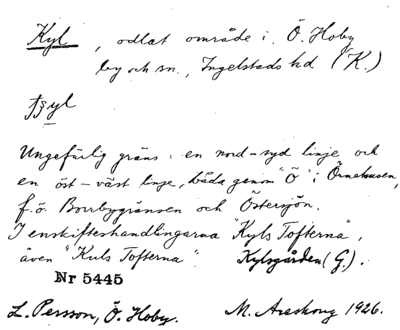 Kyl, odlat område i Ö. Hoby
by och sn., Ingelstads hd (K.)
Ungefärlig gräns: en nord-syd linje och
en öst-väst linje, båda genom "Ö" i Örnahusen,
f. ö. Borrbygränsen och Östersjön.
I enskifteshandlingarna "Kyls Tofterna",
även "Kuls Tofterna". Kylsgården (G.).
Nr 5445
L. Persson, Ö. Hoby. M. Areskoug 1926.